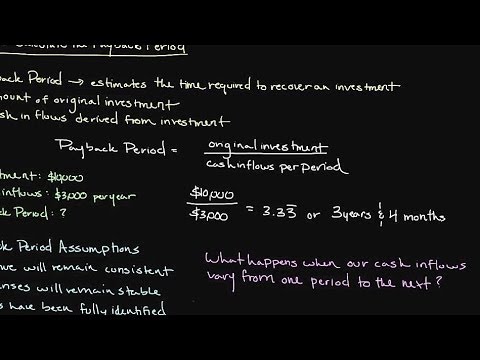 Payback Period
Period → estimates the time required to recover an investment
of original investment
in flows derived from investment
Payback Period = original investment
cash inflows per period
$10,000
inflows: $3,000 per year
Period: ?
$10,000
$3,000
= 3.33̅ or 3 years & 4 months
Period Assumptions
will remain consistent
will remain stable
have been fully identified
What happens when our cash inflows
vary from one period to the next?